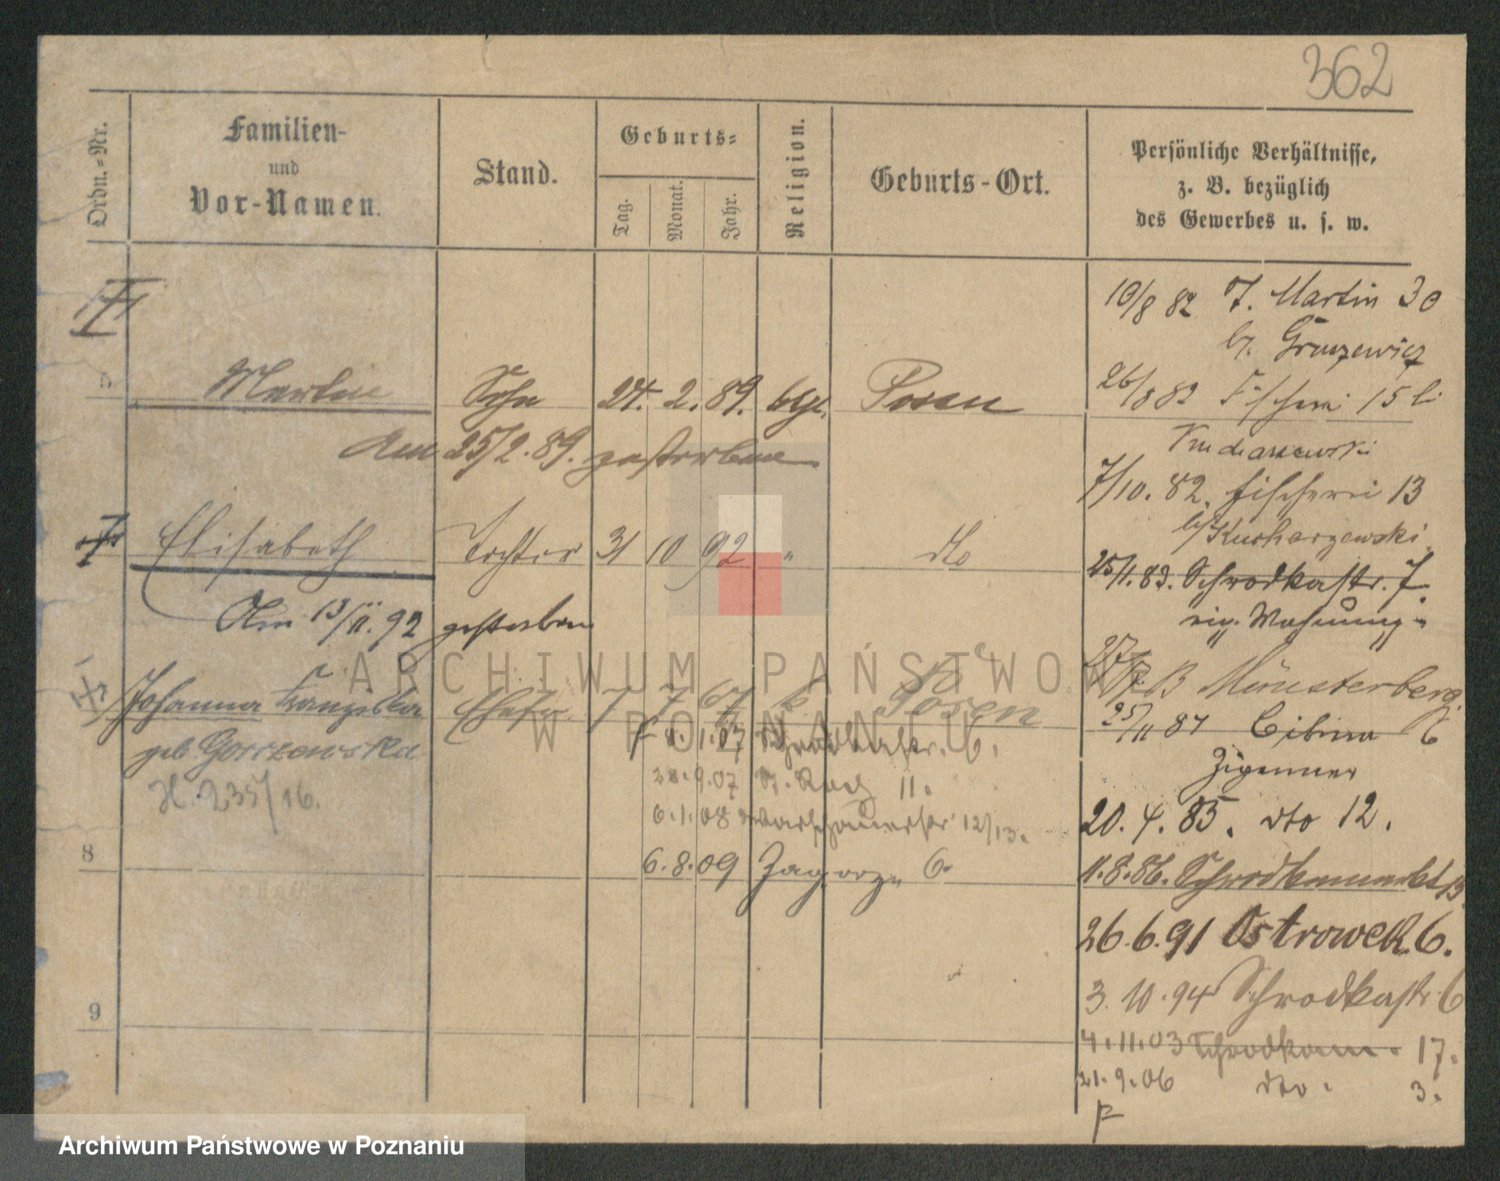 362
Ordn.-Nr.
Familien-
und
Vor-Namen.
Stand.
Geburts-
Tag.
Monat.
Jahr.
Religion.
Geburts-Ort.
Persönliche Verhältnisse,
z. B. bezüglich
des Gewerbes u. s. w.
10/8 82 St. Martin 30
b.
26/8 82 Fischerei 15 b.
7/10. 82. Fischerei 13
b/ Kucharzewski
25/1. 83. Schrodkastr. 7
eig. Wohnung
Münsterberg
25/11 84 Cibina 6
Zigeuner
20. 4. 85. dto 12.
11. 8. 86. Schrodkamarkt 13
26. 6. 91 Ostrowek 6.
3. 10. 94 Schrodkastr. 6
4. 11. 03 Schrodkam. 17.
21. 9. 06 dto. 3.
Martin Sohn 24. 2. 89. kath. Posen
am 25/2. 89. gestorben
Elisabeth Tochter 31 10 92 " dto
Am 13/11. 92 gestorben
Johanna Franziska Ehefr. 7 7 67 k Posen
geb Gorczewska
H. 235/16.
1. 07 Schrodkastr. 6.
28. 9. 07 11.
6. 1. 08 Warschauerstr. 12/13.
8
6. 8. 09 Zagorze 6.
9
ARCHIWUM PAŃSTWOWE
W POZNANIU
Archiwum Państwowe w Poznaniu